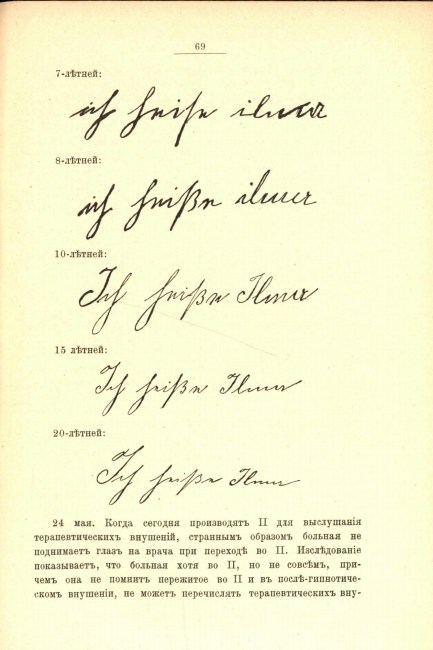 69
7-лѣтней:
ich heiße ilma
8-лѣтней:
ich heiße ilma
10-лѣтней:
Ich heiße Ilma
15 лѣтней:
Ich heiße Ilma
20-лѣтней:
Ich heiße Ilma
24 мая. Когда сегодня производятъ II для выслушанія
терапевтическихъ внушеній, страннымъ образомъ больная не
поднимаетъ глазъ на врача при переходѣ во II. Изслѣдованіе
показываетъ, что больная хотя во II, но не совсѣмъ, при-
чемъ она не помнитъ пережитое во II и въ послѣ-гипнотиче-
скомъ внушеніи, не можетъ перечислять терапевтическихъ вну-